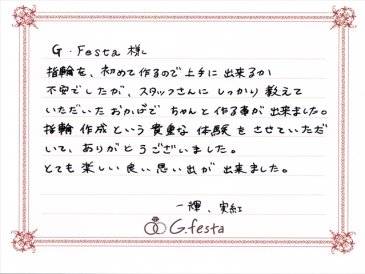 G.Festa 様
指輪を、初めて作るので上手に出来るか
不安でしたが、スタッフさんにしっかり教えて
いただいたおかげで ちゃんと作る事が出来ました。
指輪作成という貴重な体験をさせていただ
いて、ありがとうございました。
とても楽しい良い思い出が出来ました。
一輝、実紅
G.festa